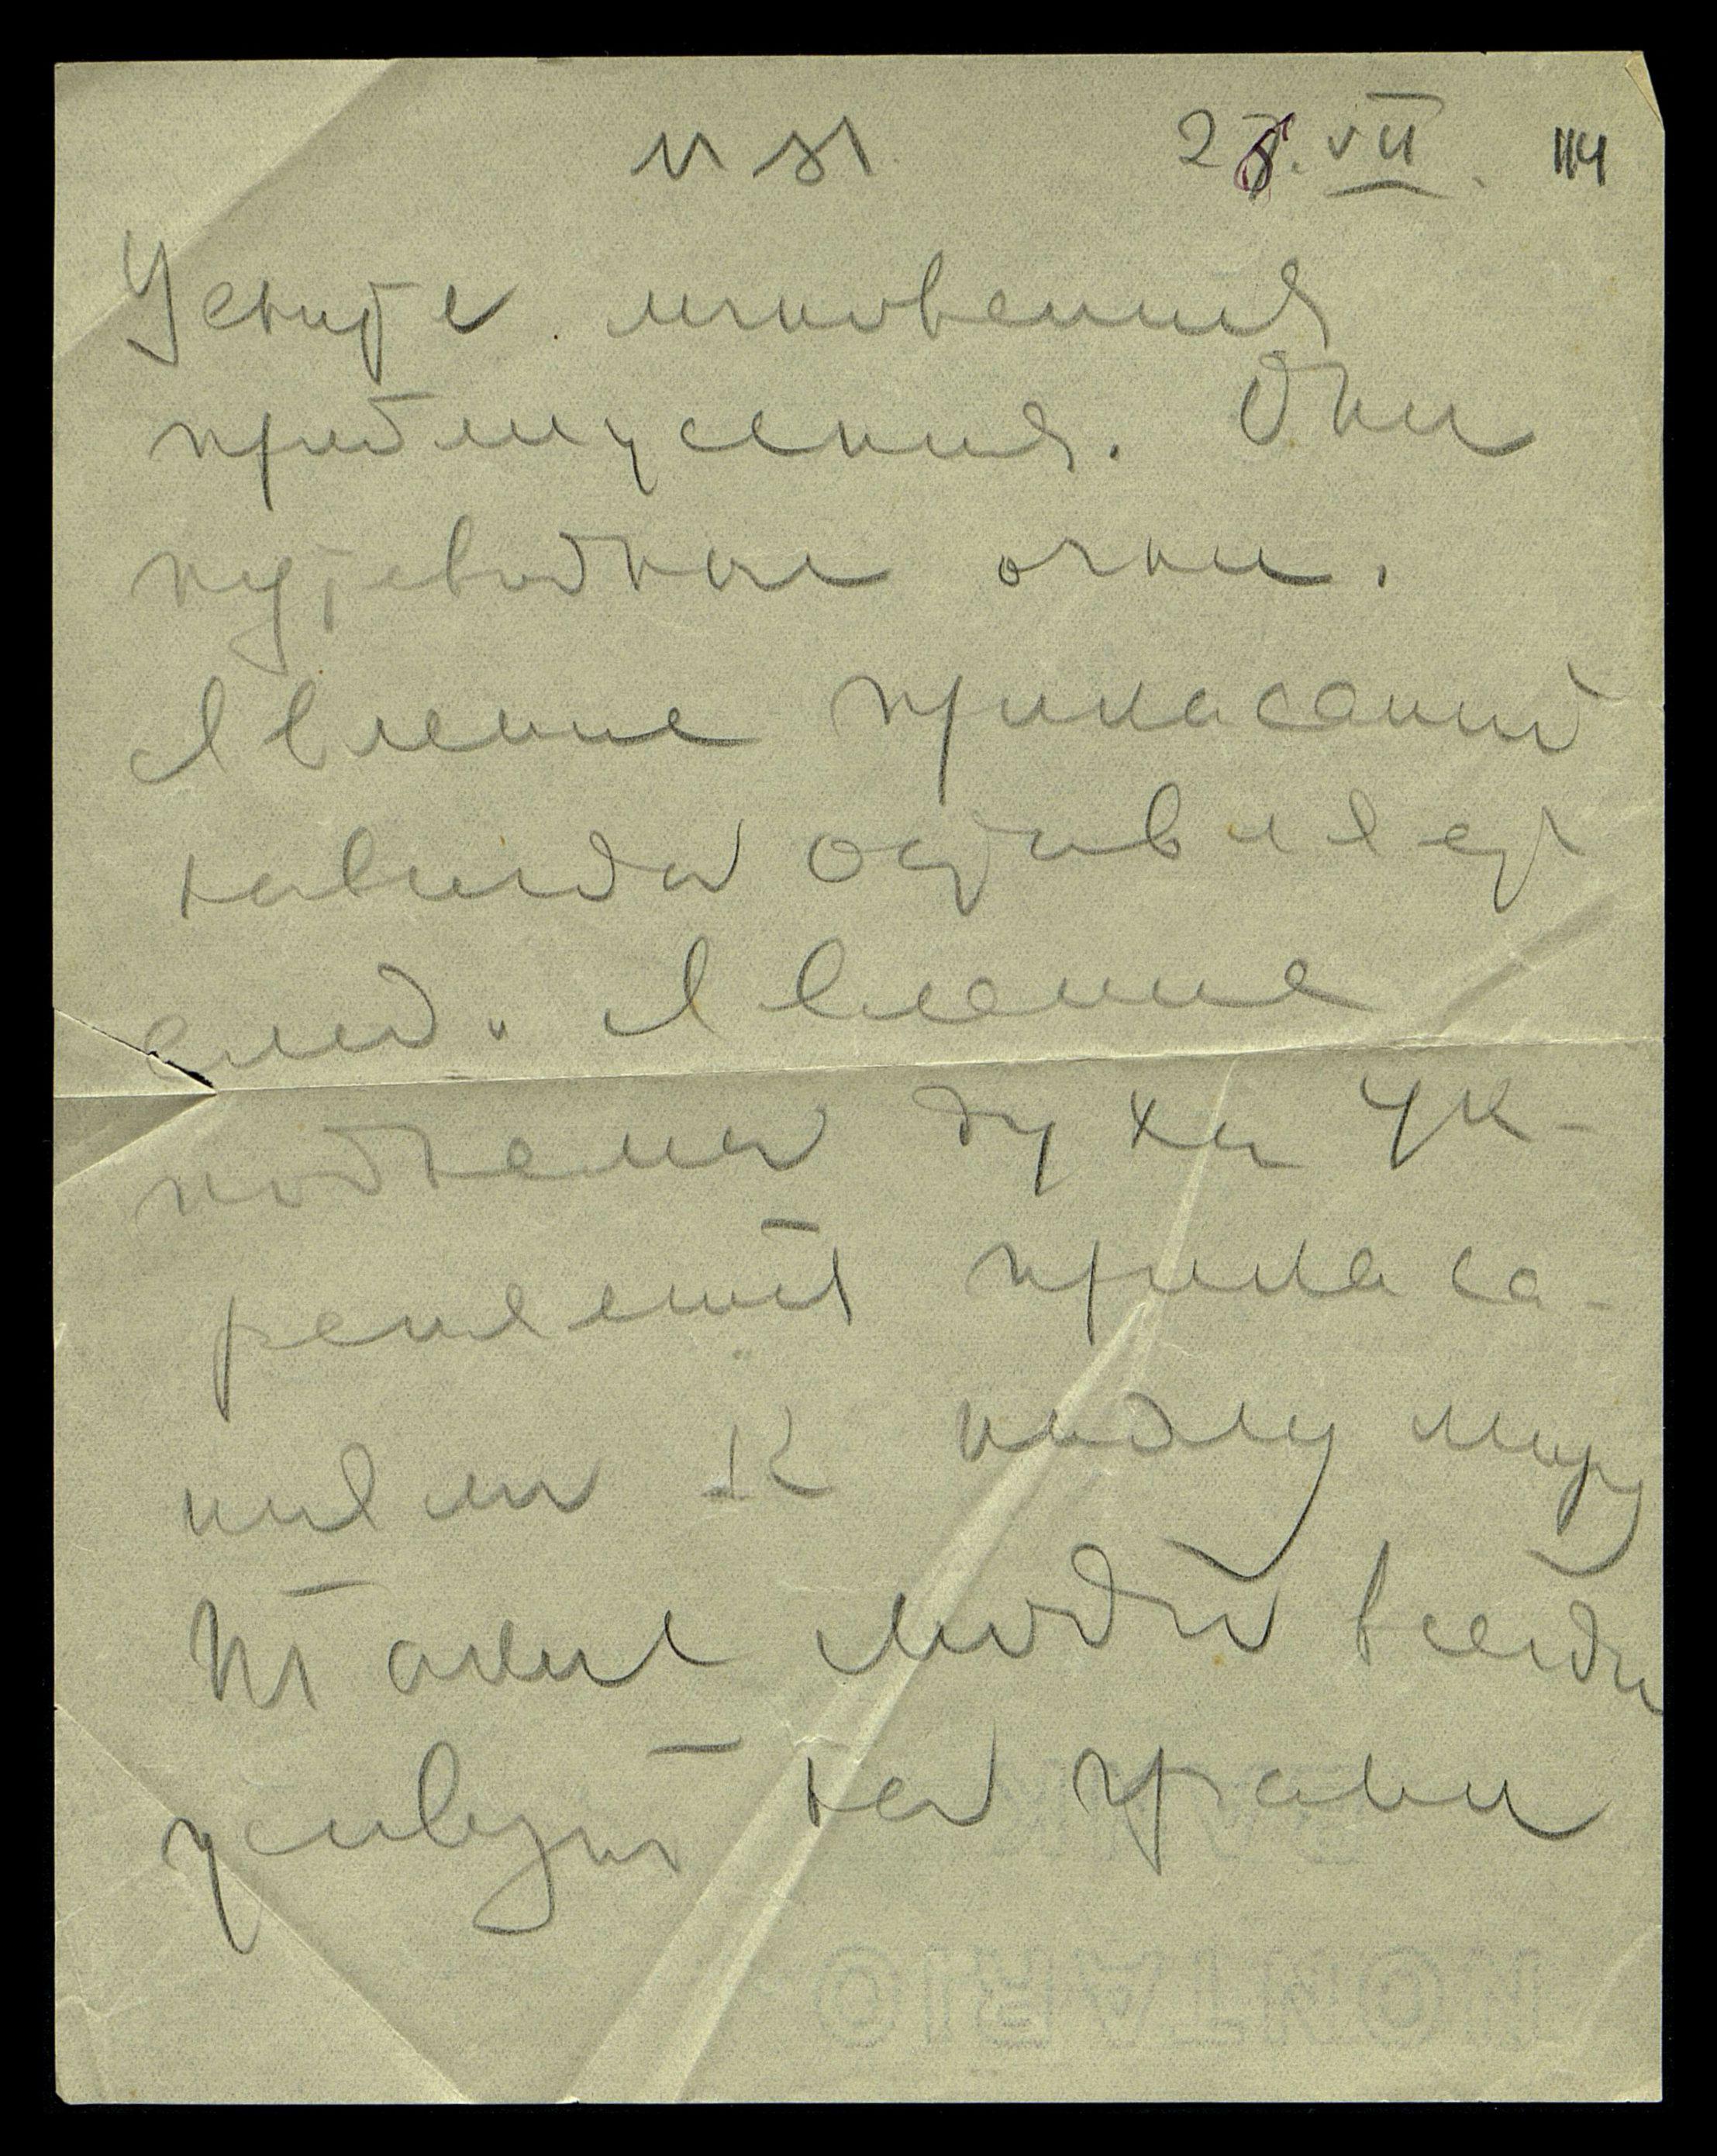 28. VII. 114
Цените мгновения
приближения. Они
путеводные огни.
Явление прикасаний
навсегда оставляет
след. Явление
подъема духа ук-
репляется прикаса-
ниями к иному миру
Такие люди всегда
живут на грани
ONTARIO